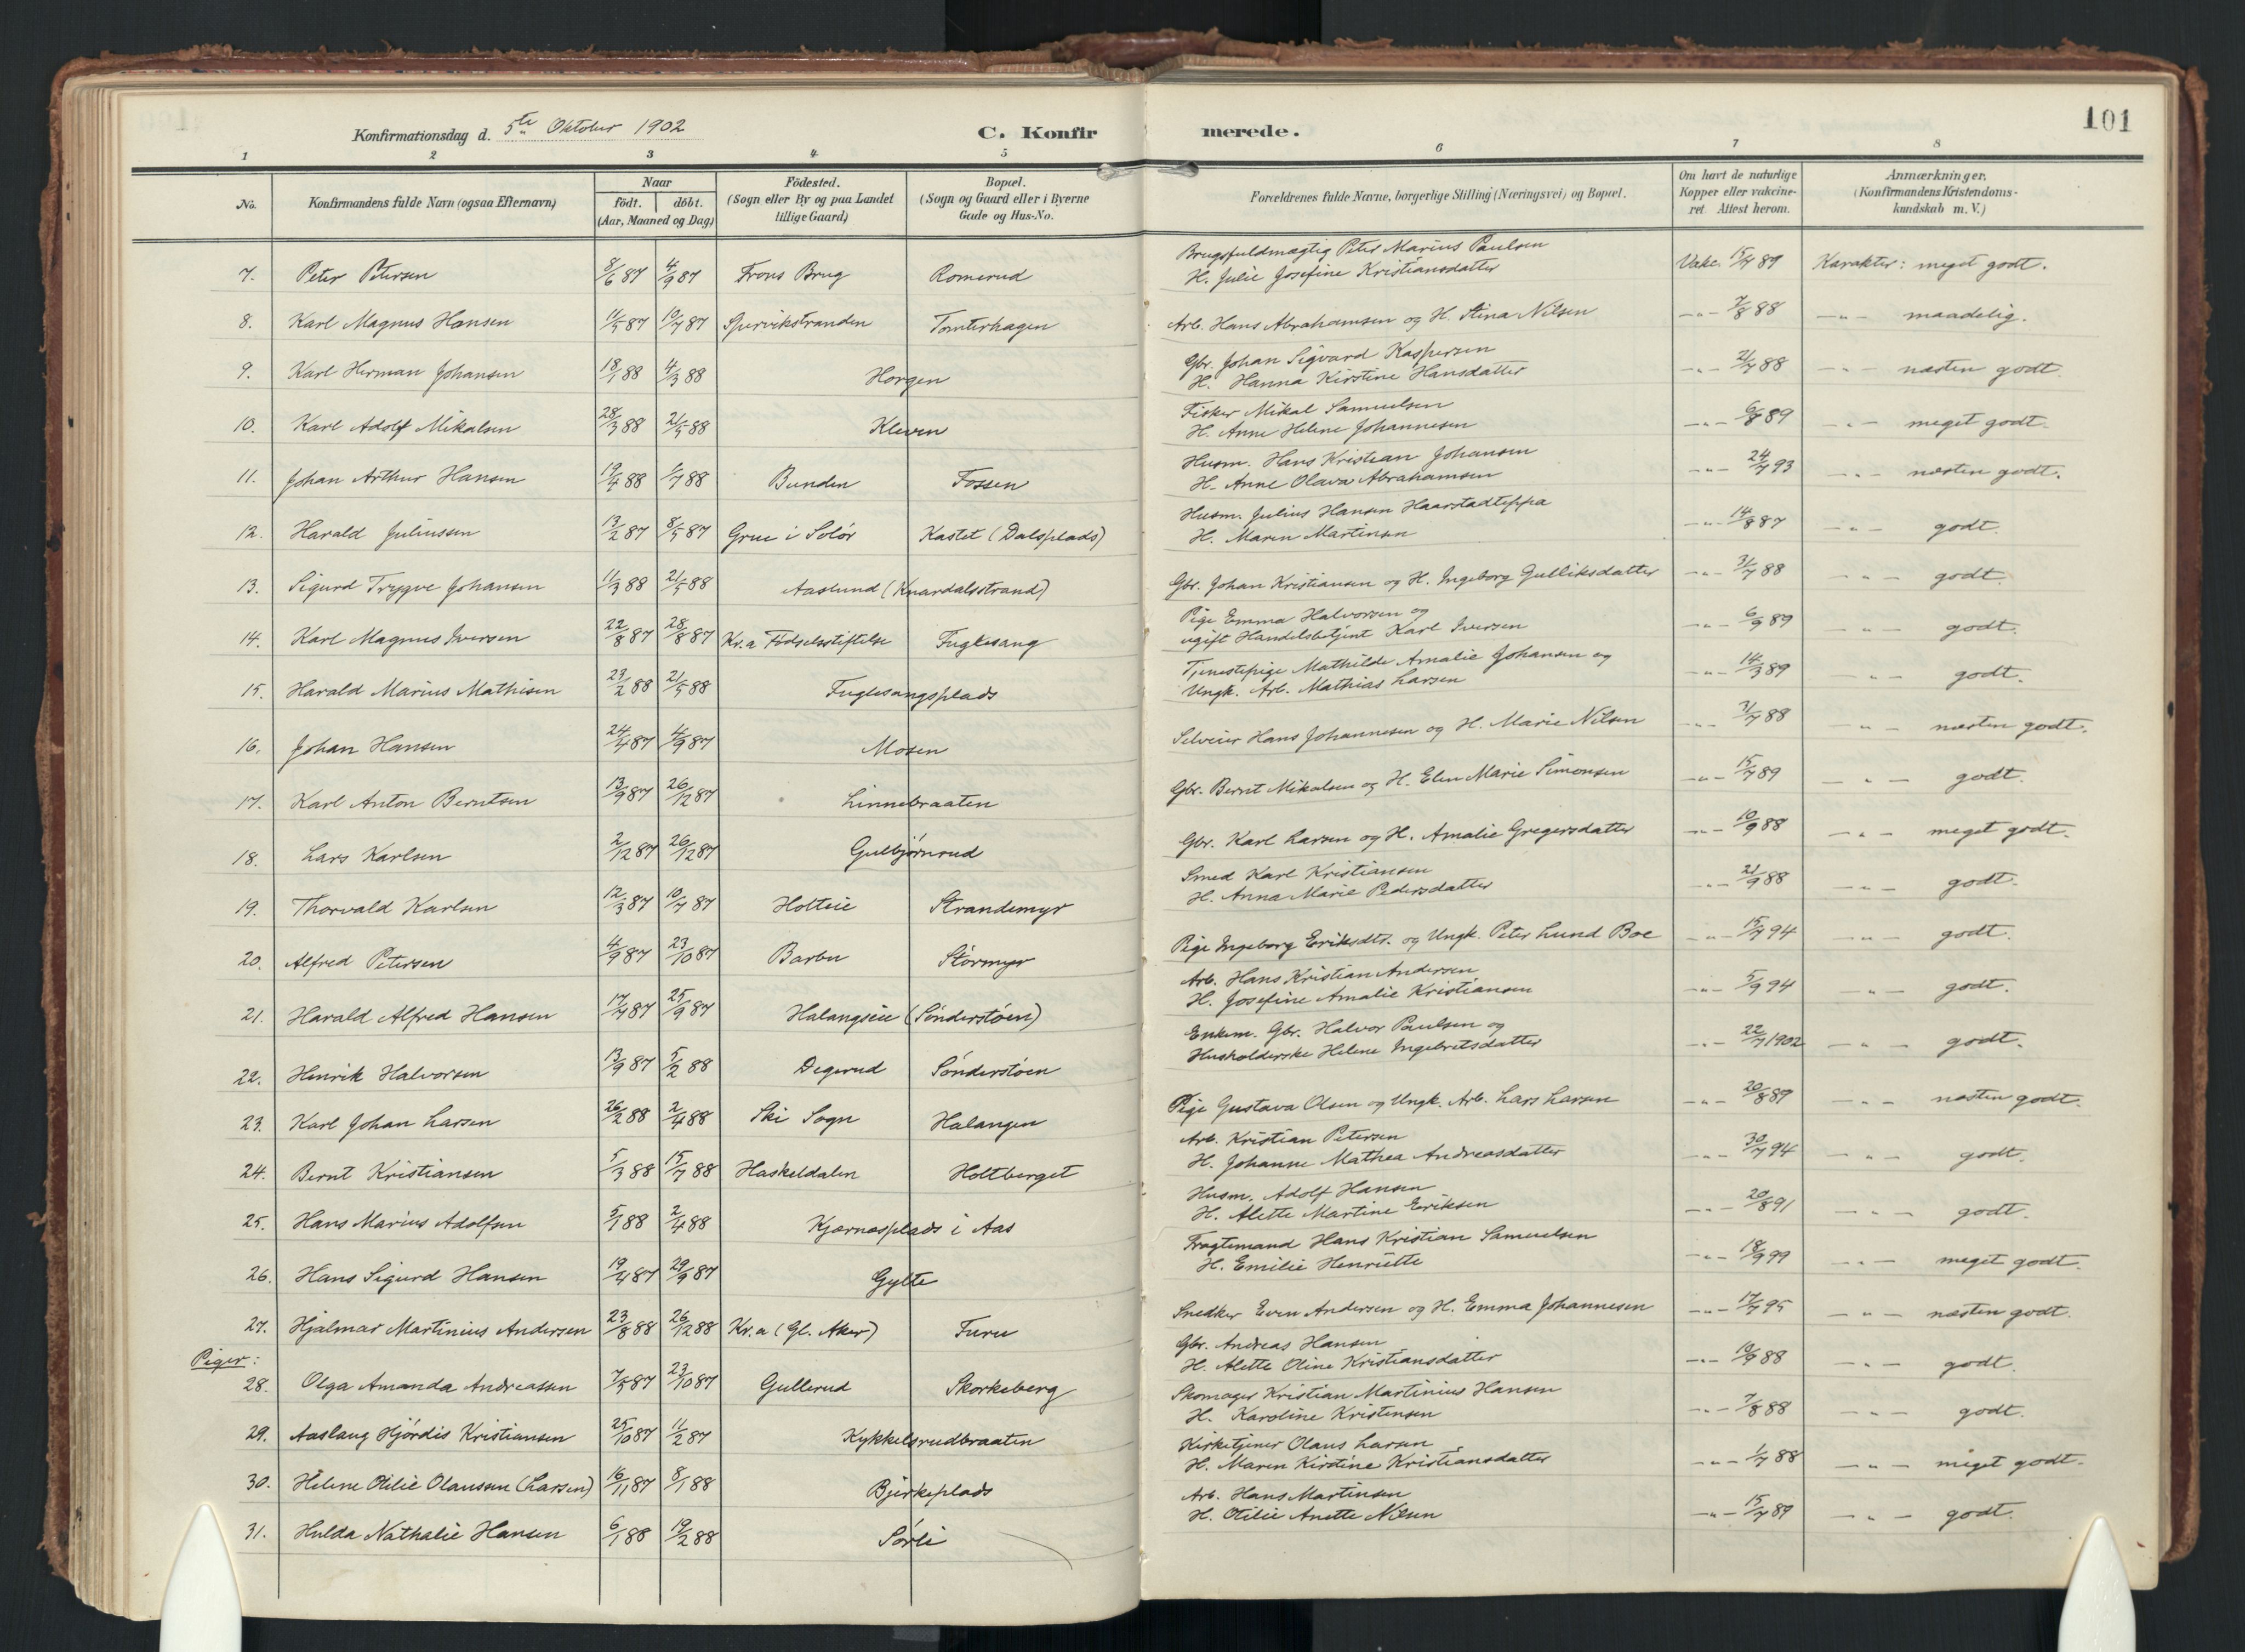 101
Konfirmationsdag d. 5te Oktober 1902 C. Konfirmerede.
1 2 3 4 5 6 7 8
No. Konfirmandens fulde Navn (ogsaa Efternavn) Naar født. døbt. (Aar, Maaned og Dag) Födested. (Sogn eller By og paa Landet tillige Gaard) Bopæl. (Sogn og Gaard eller i Byerne Gade og Hus-No. Forældrenes fulde Navne, borgerlige Stilling (Næringsvei) og Bopæl. Om havt de naturlige Kopper eller vakcineret Attest herom. Anmærkninger. (Konfirmandens Kristendomskundskab m. V.)
7. Peter Petersen 8/6 87 4/9 87 Frons Brug Romerud Brugsfuldmægtig Peter Marius Paulsen H. Julie Josefine Kristiansdatter Vakc. 15/7 89 Karakter: meget godt.
8. Karl Magnus Hansen 11/5 87 10/7 87 Spervikstranden Tomterhagen Arb. Hans Abrahamsen og H. Stina Nilsen -"- 7/8 88 -"- maadelig.
9. Karl Herman Johansen 18/1 88 4/3 88 Horgen Gbr. Johan Sigvard Kaspersen H. Hanna Kirstine Hansdatter -"- 21/7 88 -"- næsten godt.
10. Karl Adolf Mikalsen 28/3 88 21/5 88 Kleven Fisker Mikal Samuelsen H. Anne Helene Johannesen -"- 6/8 89 -"- meget godt.
11. Johan Arthur Hansen 19/4 88 1/7 88 Bunden Fossen Husm. Hans Kristian Johansen H. Anne Olava Abrahamsen -"- 24/7 93 -"- næsten godt.
12. Harald Juliussen 13/2 87 8/5 87 Grue i Solør Kastet (Dalsplads) Husm. Julius Hansen Haarstadteppa H. Maren Martinsen -"- 14/8 87 -"- godt.
13. Sigurd Trygve Johansen 11/3 88 21/5 88 Aaslund (Knardalsstrand) Gbr. Johan Kristiansen og H. Ingeborg Gulliksdatter -"- 31/7 88 -"- godt.
14. Karl Magnus Iversen 22/8 87 28/8 87 Kr.a Fødselsstiftelse Fuglesang Pige Emma Halvorsen og ugift Handelsbetjent Karl Iversen -"- 6/9 89 -"- godt.
15. Harald Marius Mathisen 23/2 88 21/5 88 Fuglesangsplads Tjenestepige Mathilde Amalie Johansen og Ungk. Arb. Mathias Larsen -"- 14/3 89 -"- godt.
16. Johan Hansen 24/4 87 4/9 87 Mosen Selveier Hans Johannesen og H. Marie Nilsen -"- 31/7 88 -"- næsten godt.
17. Karl Anton Berntsen 13/9 87 26/12 87 Linnebraaten Gbr. Bernt Mikalsen og H. Elen Marie Simonsen -"- 15/7 89 -"- godt.
18. Lars Karlsen 2/12 87 26/12 87 Gulbjørnrud Gbr. Karl Larsen og H. Amalie Gregersdatter -"- 10/9 88 -"- meget godt.
19. Thorvald Karlsen 12/3 87 10/7 87 Holteie Strandemyr Smed Karl Kristiansen H. Anna Marie Pedersdatter -"- 21/9 88 -"- godt.
20. Alfred Petersen 4/9 87 23/10 87 Barbu Størmyr Pige Ingeborg Eriksdtr. og Ungk. Peter Lund Boe -"- 15/7 94 -"- godt.
21. Harald Alfred Hansen 17/7 87 25/9 87 Halangseie (Sønderstøen) Arb. Hans Kristian Andersen H. Josefine Amalie Kristiansen -"- 5/9 94 -"- godt.
22. Henrik Halvorsen 13/9 87 5/2 88 Degerud Sønderstøen Enkem. Gbr. Halvor Paulsen og Husholderske Helene Ingebretsdatter -"- 22/7 1902 -"- godt.
23. Karl Johan Larsen 26/2 88 2/4 88 Ski Sogn Halangen Pige Gustava Olsen og Ungk. Arb. Lars Larsen -"- 20/8 89 -"- næsten godt.
24. Bernt Kristiansen 5/3 88 15/7 88 Haskeldalen Holtberget Arb. Kristian Petersen H. Johanne Mathea Andreasdatter -"- 30/7 94 -"- godt.
25. Hans Marius Adolfsen 5/1 88 2/4 88 Kjærnesplads i Aas Husm. Adolf Hansen H. Alette Martine Eriksen -"- 20/8 91 -"- godt.
26. Hans Sigurd Hansen 19/4 87 29/9 87 Gylte Fragtemand Hans Kristian Samuelsen H. Emilie Henriette -"- 18/9 99 -"- meget godt.
27. Hjalmar Martinius Andersen 23/8 88 26/12 88 Kr.a (Gl. Aker) Furu Snedker Even Andersen og H. Emma Johannesen -"- 17/7 95 -"- næsten godt.
Piger:
28. Olga Amanda Andreassen 7/5 87 23/10 87 Gullerud Skorkeberg Gbr. Andreas Hansen H. Alette Oline Kristiansdatter -"- 10/9 88 -"- godt.
29. Aaslaug Hjørdis Kristiansen 25/10 87 11/2 87 Kykkelsrudbraaten Skomager Kristian Martinius Hansen H. Karoline Kristensen -"- 7/8 88 -"- godt.
30. Helene Otilie Olaussen (Larsen) 16/11 87 8/1 88 Bjerkeplads Kirketjener Olaus Larsen H. Maren Kirstine Kristiansdatter -"- 1/7 88 -"- meget godt.
31. Hulda Nathalie Hansen 6/1 88 19/2 88 Sørli Arb. Hans Martinsen H. Otilie Anette Nilsen -"- 15/7 89 -"- godt.